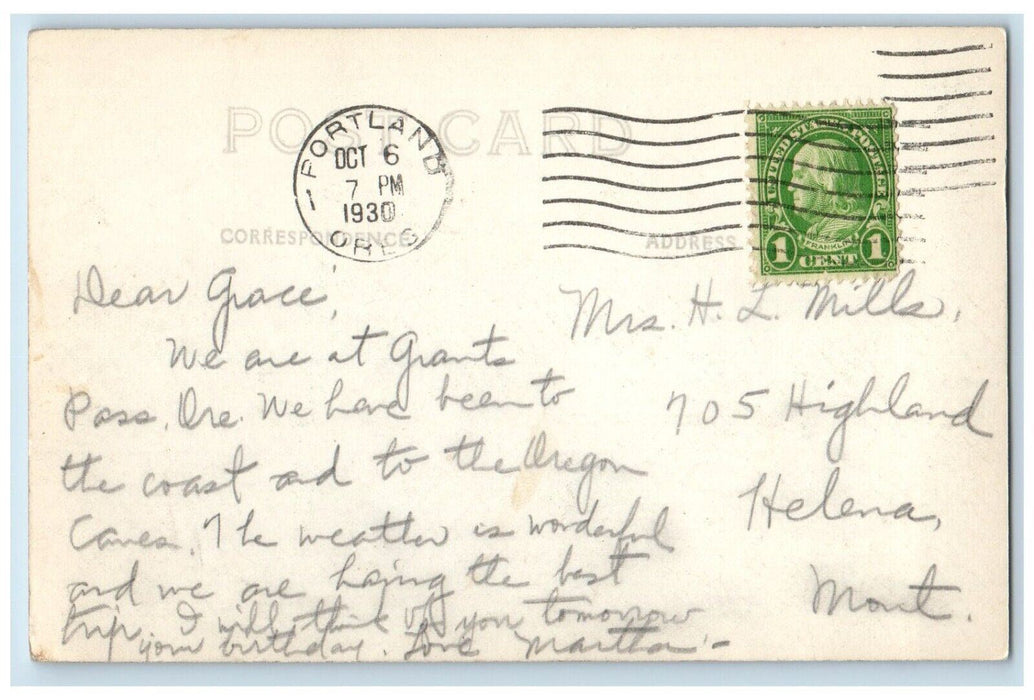 POST CARD
PORTLAND
OCT 6
7 PM
1930
1 OREG
UNITED STATES POSTAGE
FRANKLIN
1 CENT 1
CORRESPONDENCE
ADDRESS
Dear Grace,
We are at Grants
Pass, Ore. We have been to
the coast and to the Oregon
Caves. The weather is wonderful
and we are having the best
trip. I will think of you tomorrow
your birthday. Love Martha -
Mrs. H. L. Mills,
705 Highland
Helena,
Mont.